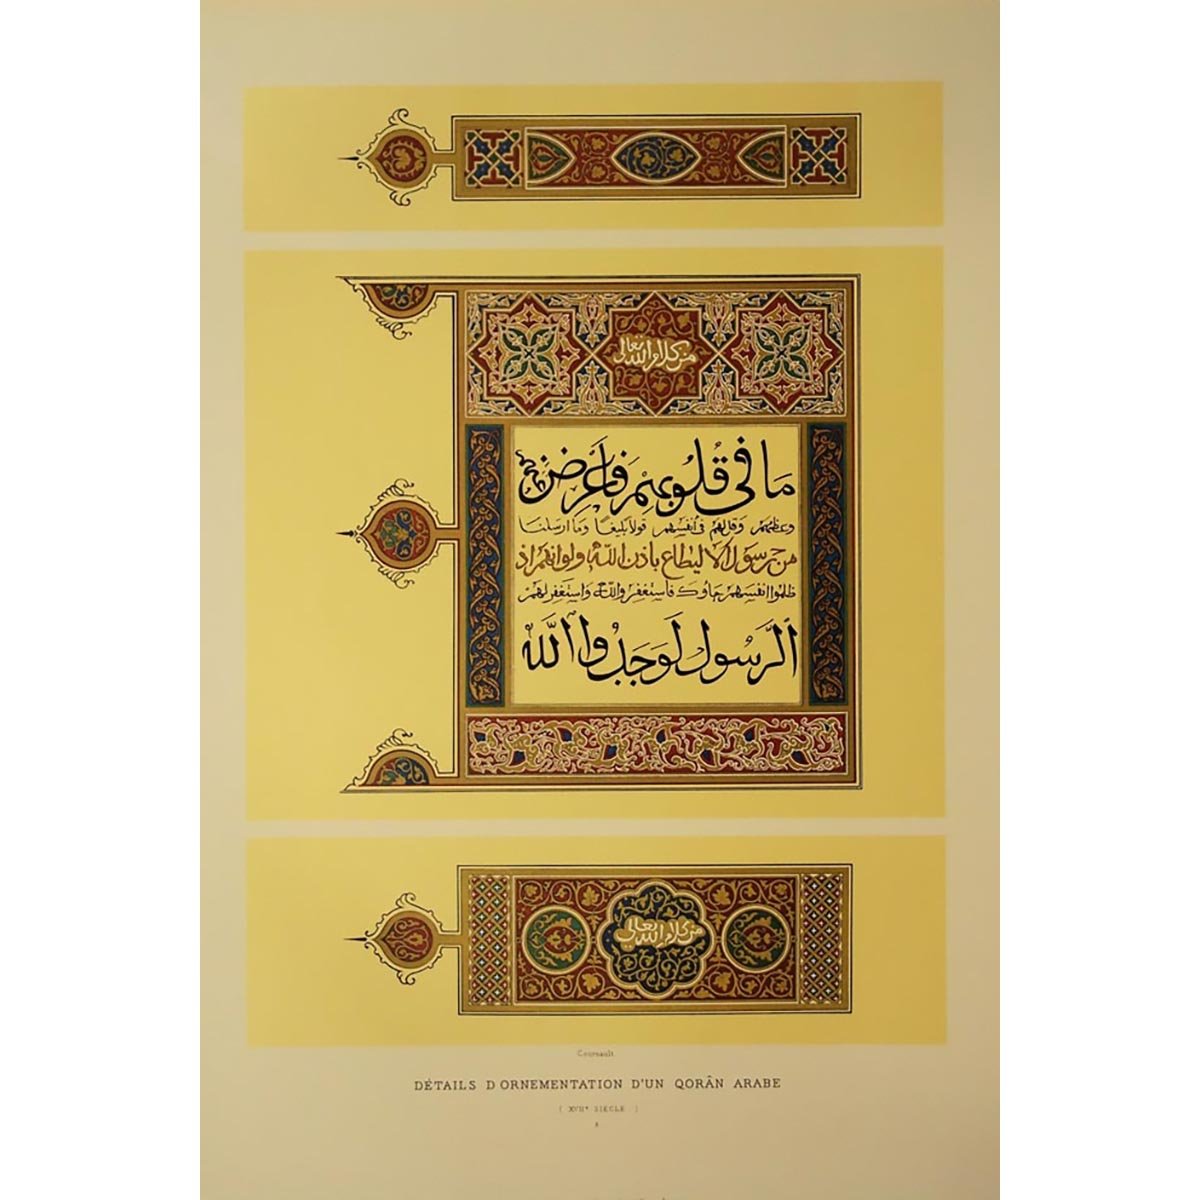 من كلام الله تعالى
مَا فِي قُلُوبِهِمْ فَأَعْرِضْ عَ
وعظهم وقل لهم في أنفسهم قولا بليغا وما ارسلنا
من رسول الا ليطاع باذن الله ولو انهم اذ
ظلموا انفسهم جاوك فاستغفروا الله واستغفر لهم
الرَّسُول لَوَجَدُوا اللَّه
من كلام الله تعالى
Cournault
DÉTAILS D'ORNEMENTATION D'UN QORÂN ARABE
( XVIIᵉ SIÈCLE )